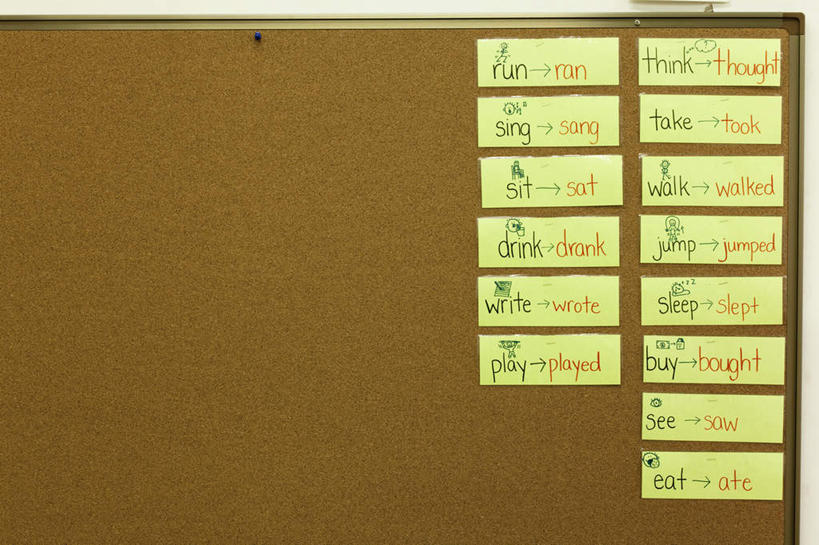 run → ran
sing → sang
sit → sat
drink → drank
write → wrote
play → played
think → thought
take → took
walk → walked
jump → jumped
sleep → slept
buy → bought
see → saw
eat → ate